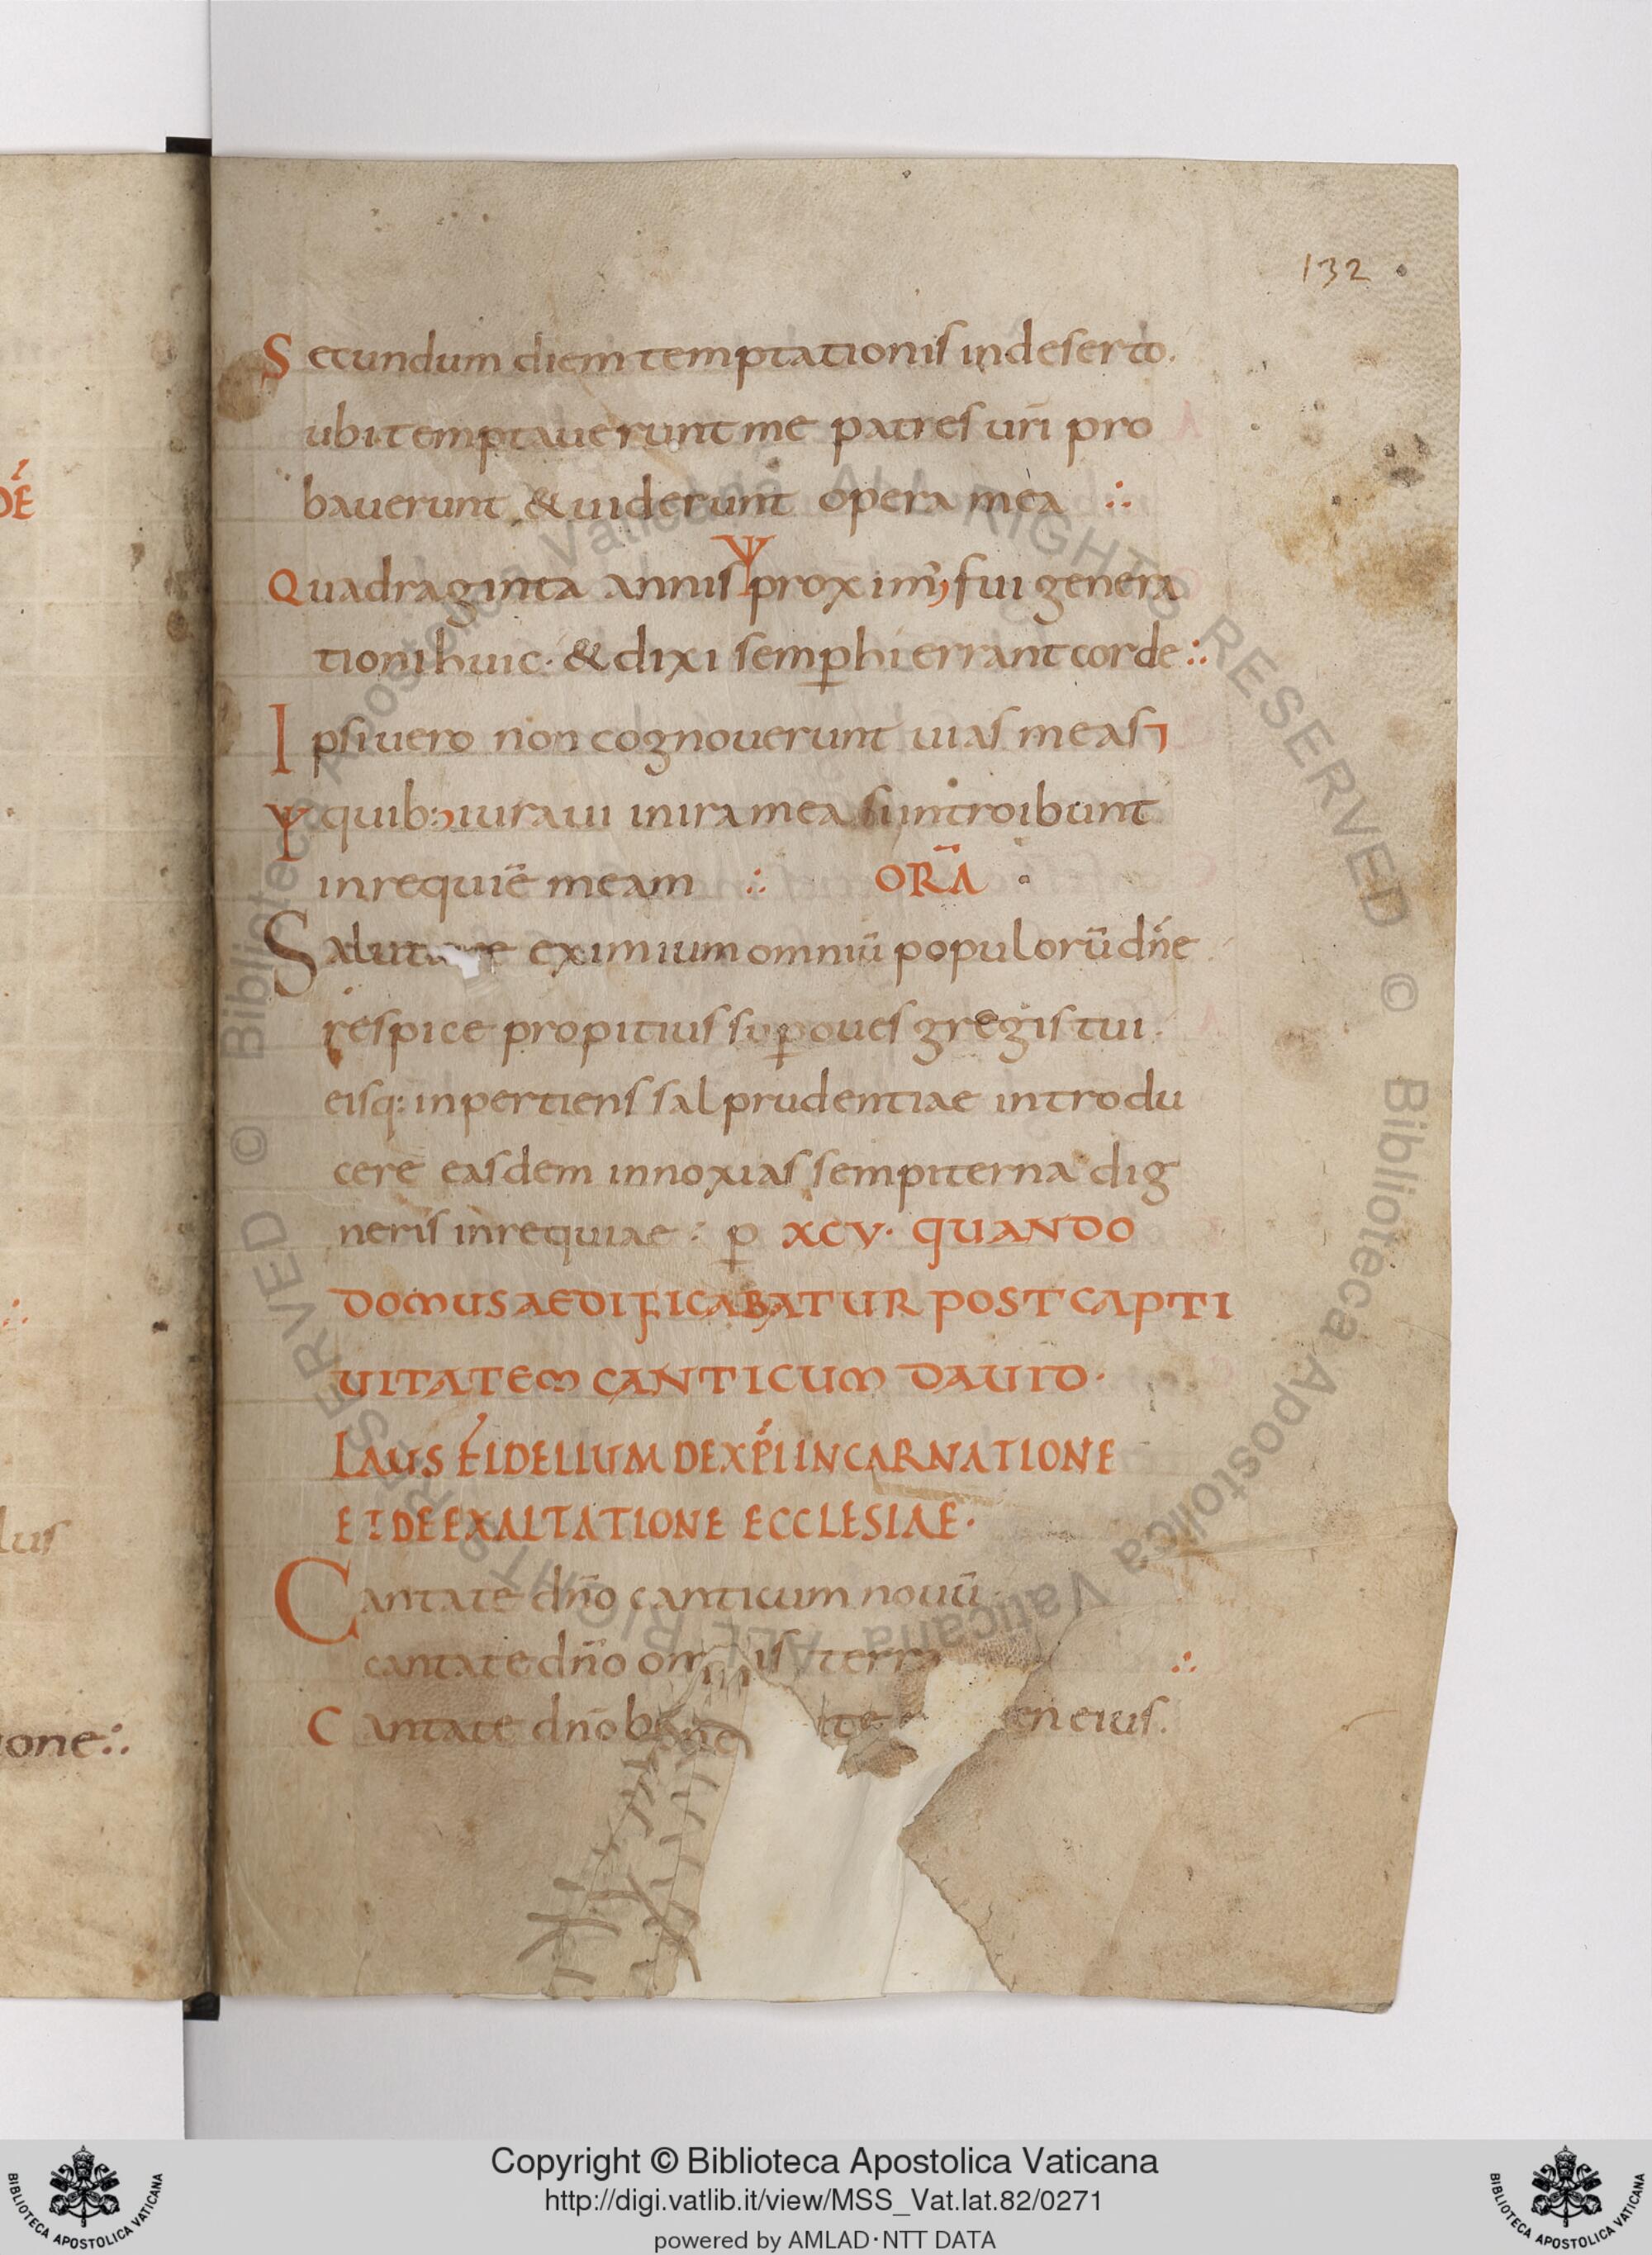 132
Secundum diem temptationis indeserto.
ubi temptauerunt me patres ur̄i pro
bauerunt &uiderunt opera mea ∴
Quadraginta annis Ψ proxim; fui genera
tioni huic· &dixi semp̱ hi errant corde ∴
Ipsi uero non cognouerunt uias meas⁊
Ψ quib; iuraui inira mea siintroibunt
inrequiē meam ∴ ORA̅
Salutare eximium omniū populorū dn̄e
respice propitius sup̱ oues gregis tui.
eisq: inpertiens sal prudentiae introdu
cere easdem innoxias sempiterna dig
neris inrequiae : p̱ XCV· QUANDO
DOMUS AEDIFICABATUR POST CAPTI
UITATEM CANTICUM DAUID·
LAUS FIDELIUM DE XP̄I INCARNATIONE
ET DE EXALTATIONE ECCLESIAE·
Cantate dn̄o canticum nouū
cantate dn̄o omnis terra ∴
Cantate dn̄o bene te en eius.
DE
lus
one ∴
© Biblioteca Apostolica Vaticana ALL RIGHTS RESERVED
© Biblioteca Apostolica Vaticana ALL RIGHTS RESERVED
Copyright © Biblioteca Apostolica Vaticana
http://digi.vatlib.it/view/MSS_Vat.lat.82/0271
powered by AMLAD·NTT DATA
BIBLIOTECA APOSTOLICA VATICANA
BIBLIOTECA APOSTOLICA VATICANA